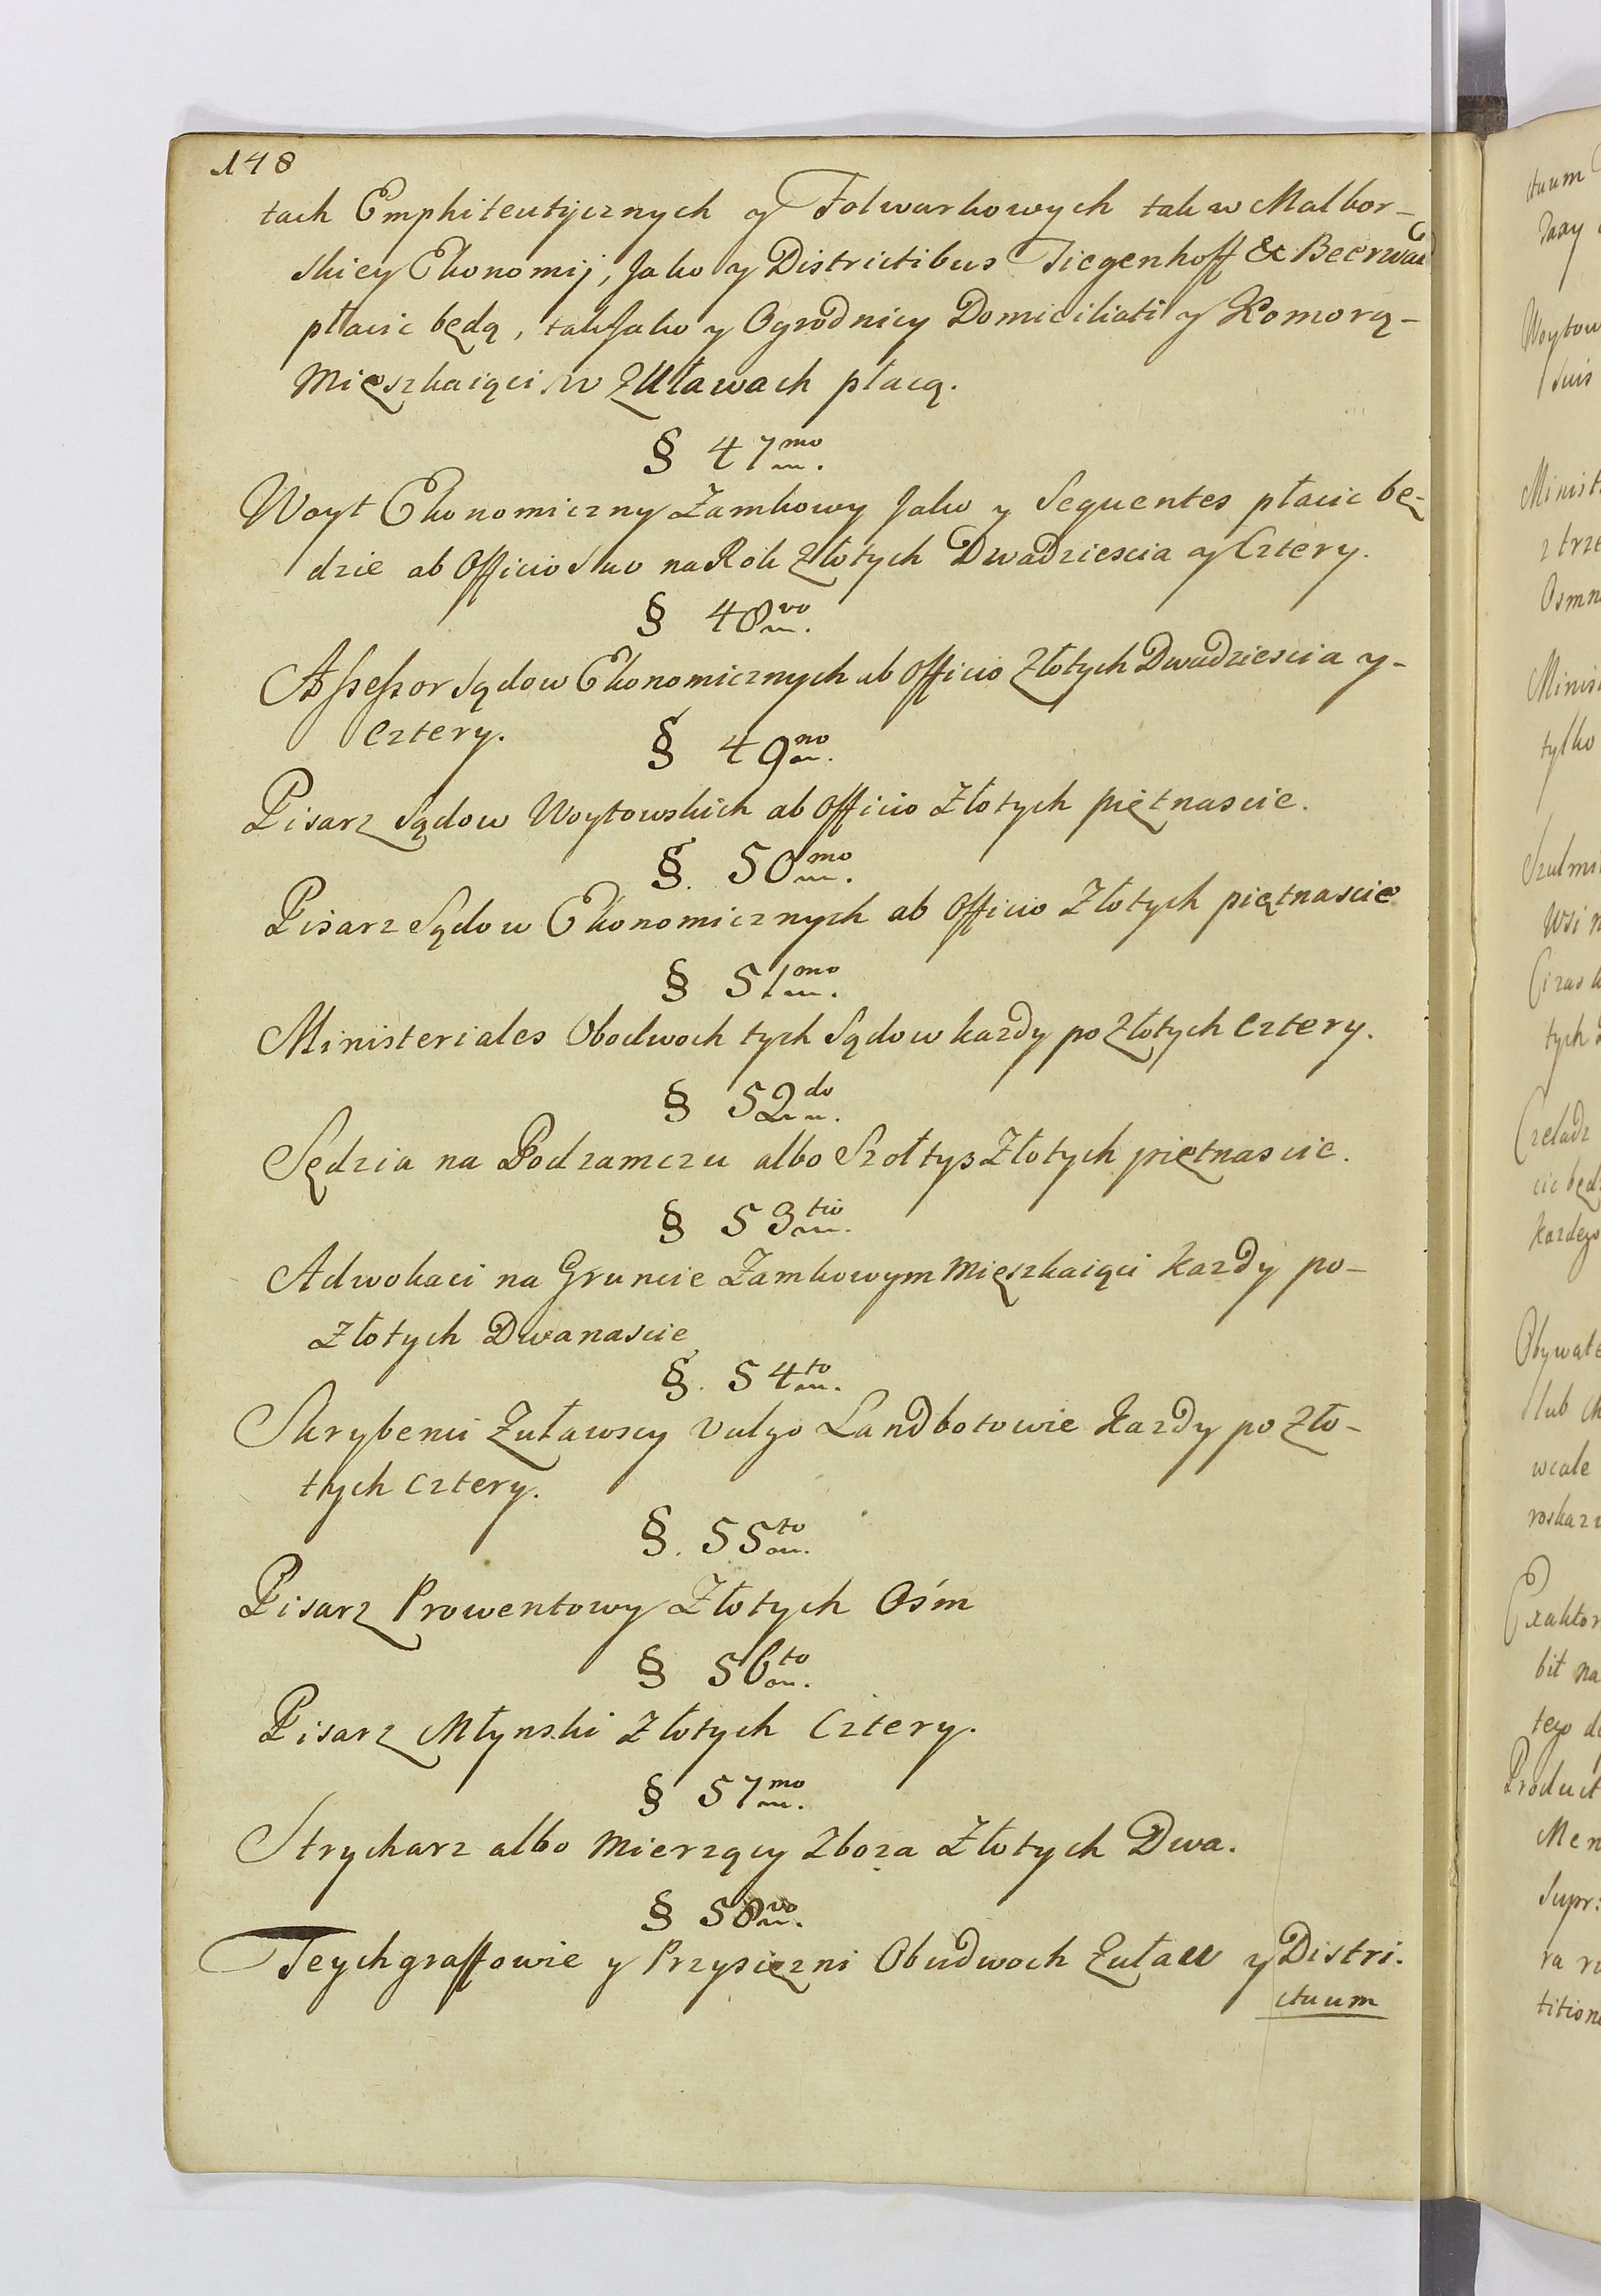 148
tach Emphiteutycznych y Folwarkowych tak w Malbor-
skiey Ekonomij, Jako y Districtibus Tiegenhoff & Beerwal
płacic będą, tak Jako y Ogrodnicy Domiciliati y Komorą-
Mięszkaiący w Zuławach płacą.
§ 47mo.
Woyt Ekonomiczny Zamkowy Jako y Sequentes płacic bę-
dzie ab Officio Suo na Rok Złotych Dwadziescia y Cztery.
§ 48vo.
Assessor Sądow Ekonomicznych ab Officio Złotych Dwadziescia y-
Cztery.
§ 49no.
Pisarz Sądow Woytowskich ab Officio Złotych piętnascie.
§. 50mo.
Pisarz Sądow Ekonomicznych ab Officio Złotych piętnascie
§ 51mo.
Ministeriales Obodwoch tych Sądow kazdy po Złotych Cztery.
§ 52do.
Sędzia na Podzamczu albo Szołtys Złotych piętnascie.
§ 53tio.
Adwokaci na Gruncie Zamkowym Mięszkaiąci kazdy po-
Złotych Dwanascie
§. 54to.
Skrybenci Zuławscy Vulgo Landbotowie kazdy po Zło-
tych Cztery.
§. 55to.
Pisarz Prowentowy Złotych Ośm
§ 56to.
Pisarz Młynski Złotych Cztery.
§ 57mo.
Strycharz albo Mierzący Zboza Złotych Dwa.
§ 58vo.
Teychgraffowie y Przysięzni Obudwoch Zuław y Distri-
ctuum
ctuum
Woytow
suis
Minist
z trze
Osmn
Minis
tylko
wsi n
tych
Czeladz
cic będ
kazdego
Obywate
slub
wcale
roskaz
Exaktor
bit na
tego d
Product
Men
Supr:
titione